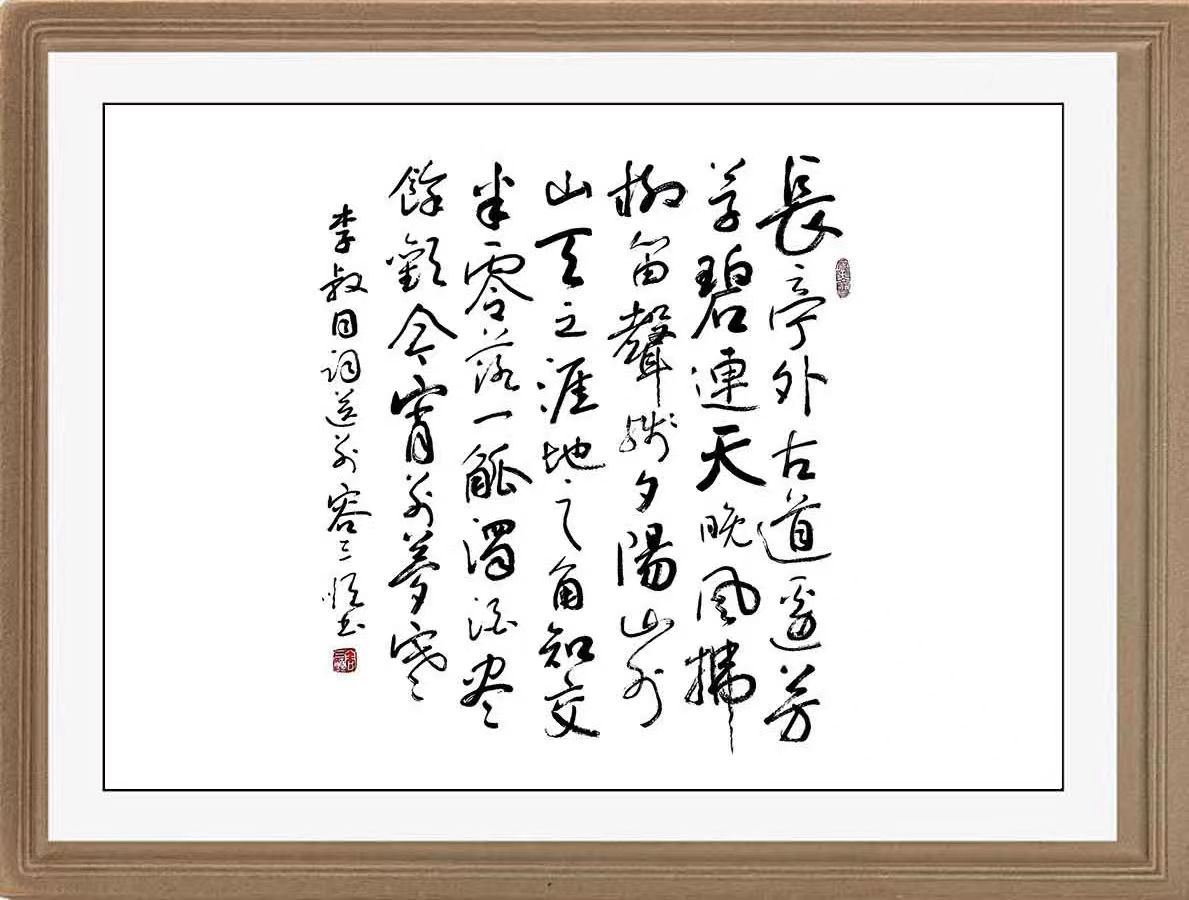 長亭外古道邊芳
草碧連天晚風拂
柳笛聲殘夕陽山外
山天之涯地之角知交
半零落一觚濁酒尽
餘歡今宵别夢寒
李叔同词送别容三书